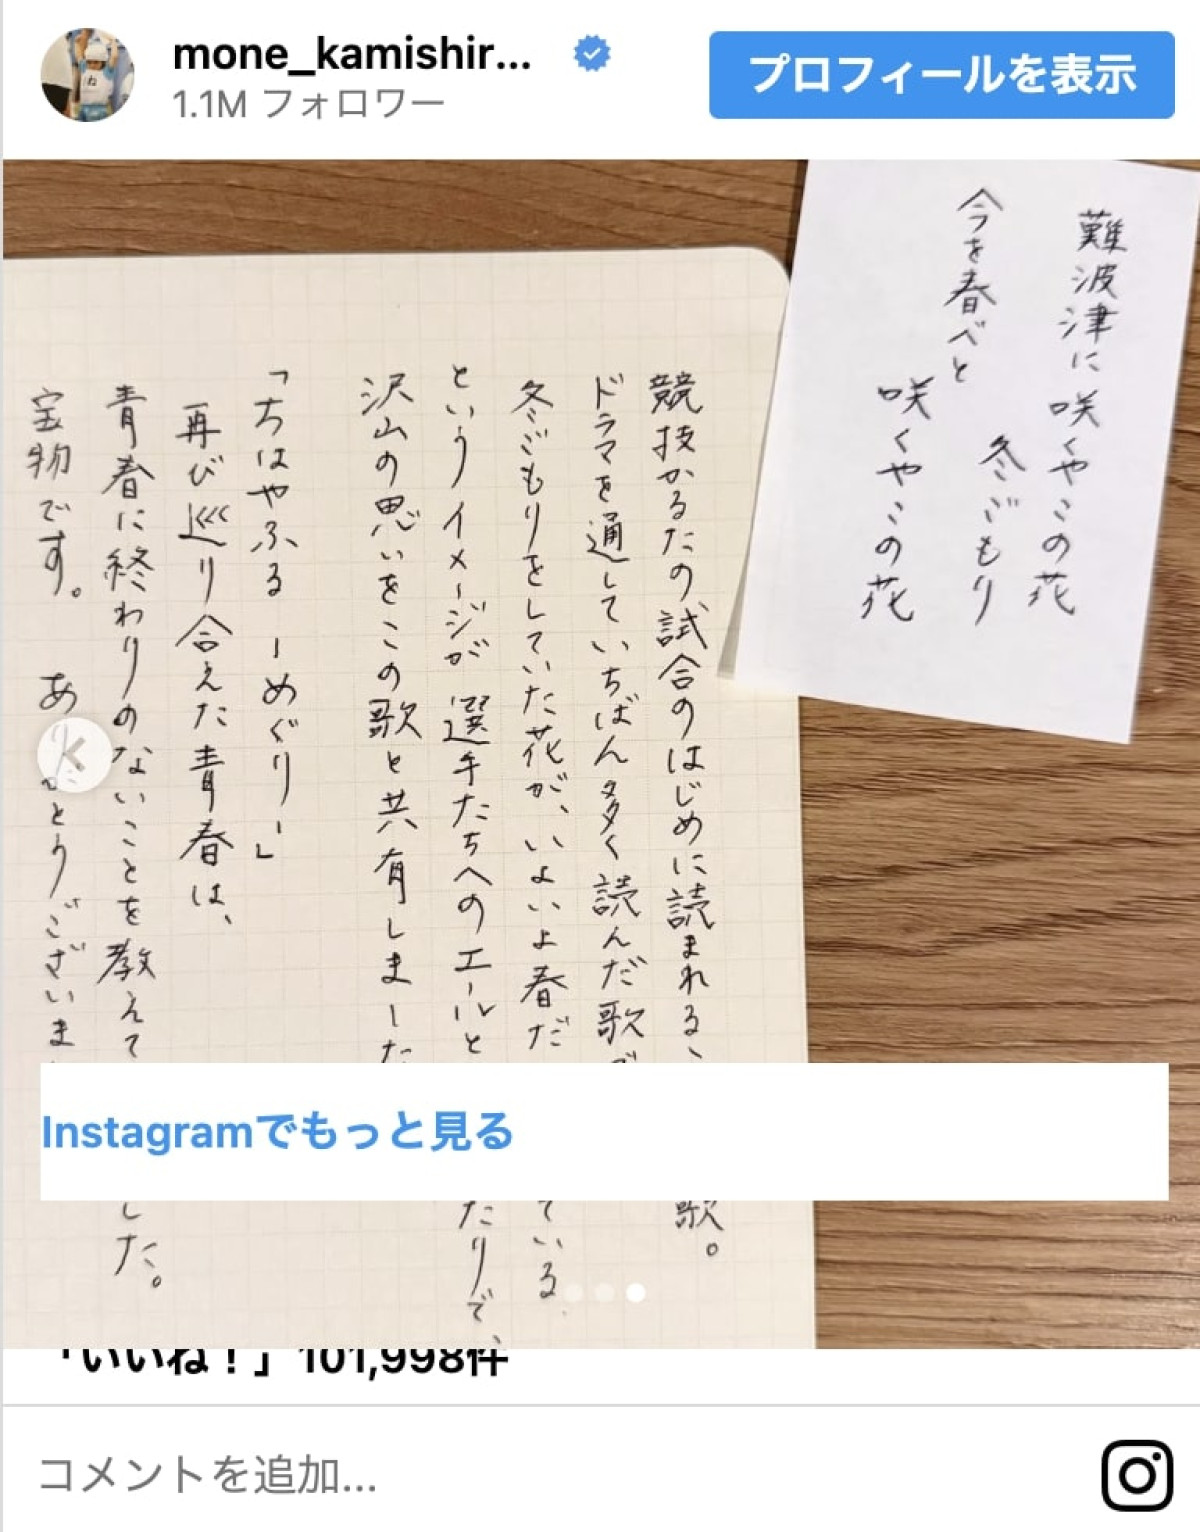 mone_kamishir...
1.1M フォロワー
プロフィールを表示
難波津に 咲くやこの花
冬ごもり
今を春べと
咲くやこの花
競技かるたの試合のはじめに読まれる、
歌。
ドラマを通していちばん多く読んだ歌で
冬ごもりをしていた花が、いよいよ春だ
ている
というイメージが 選手たちへのエールと
たりで、
沢山の思いをこの歌と共有しました
「ちはやふる ーめぐりー」
再び巡り合えた青春は、
青春に終わりのないことを教えて
した。
宝物です。 ありがとうございま
Instagramでもっと見る
「いいね！」101,998件
コメントを追加...